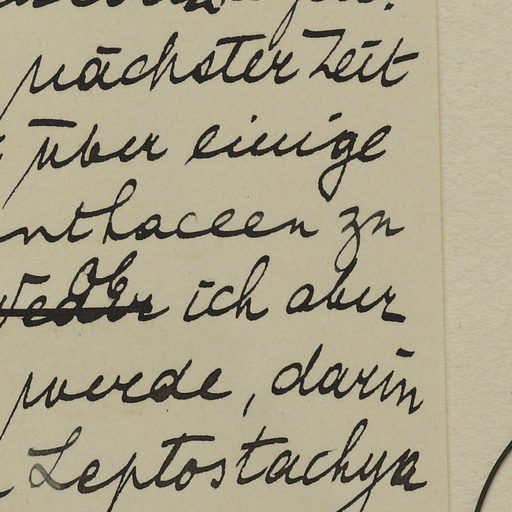 nächster Zeit
über einige
nthaceen zu
ob ich aber
werde, darin
Leptostachya